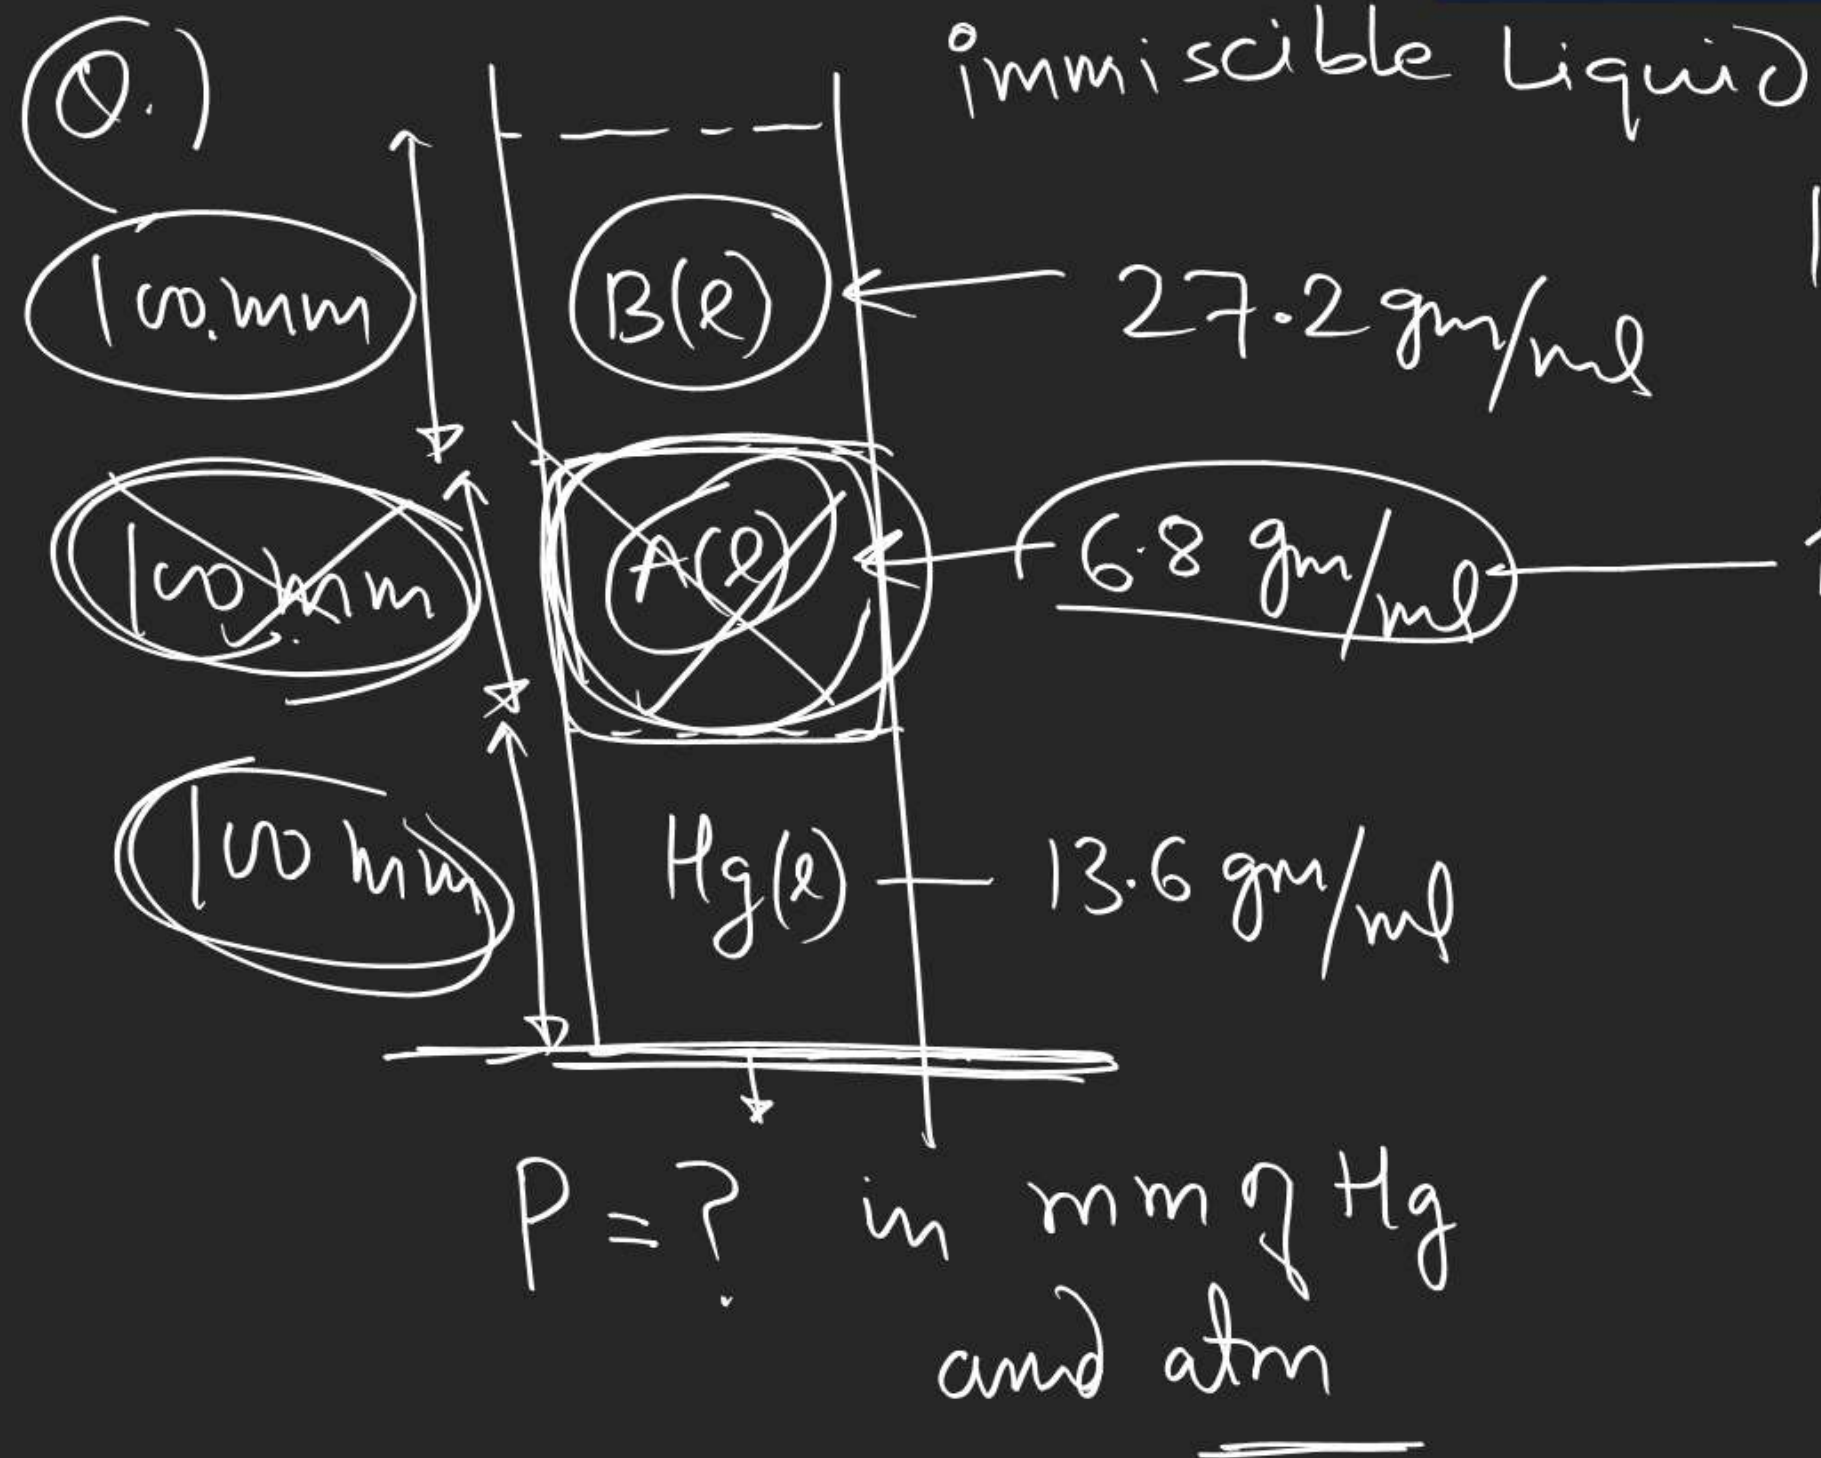 Q.)
immiscible Liquid
100.mm
B(l)
27.2 gm/ml
100 mm
A(l)
6.8 gm/ml
100 mm
Hg(l)
13.6 gm/ml
P = ? in mm of Hg
and atm